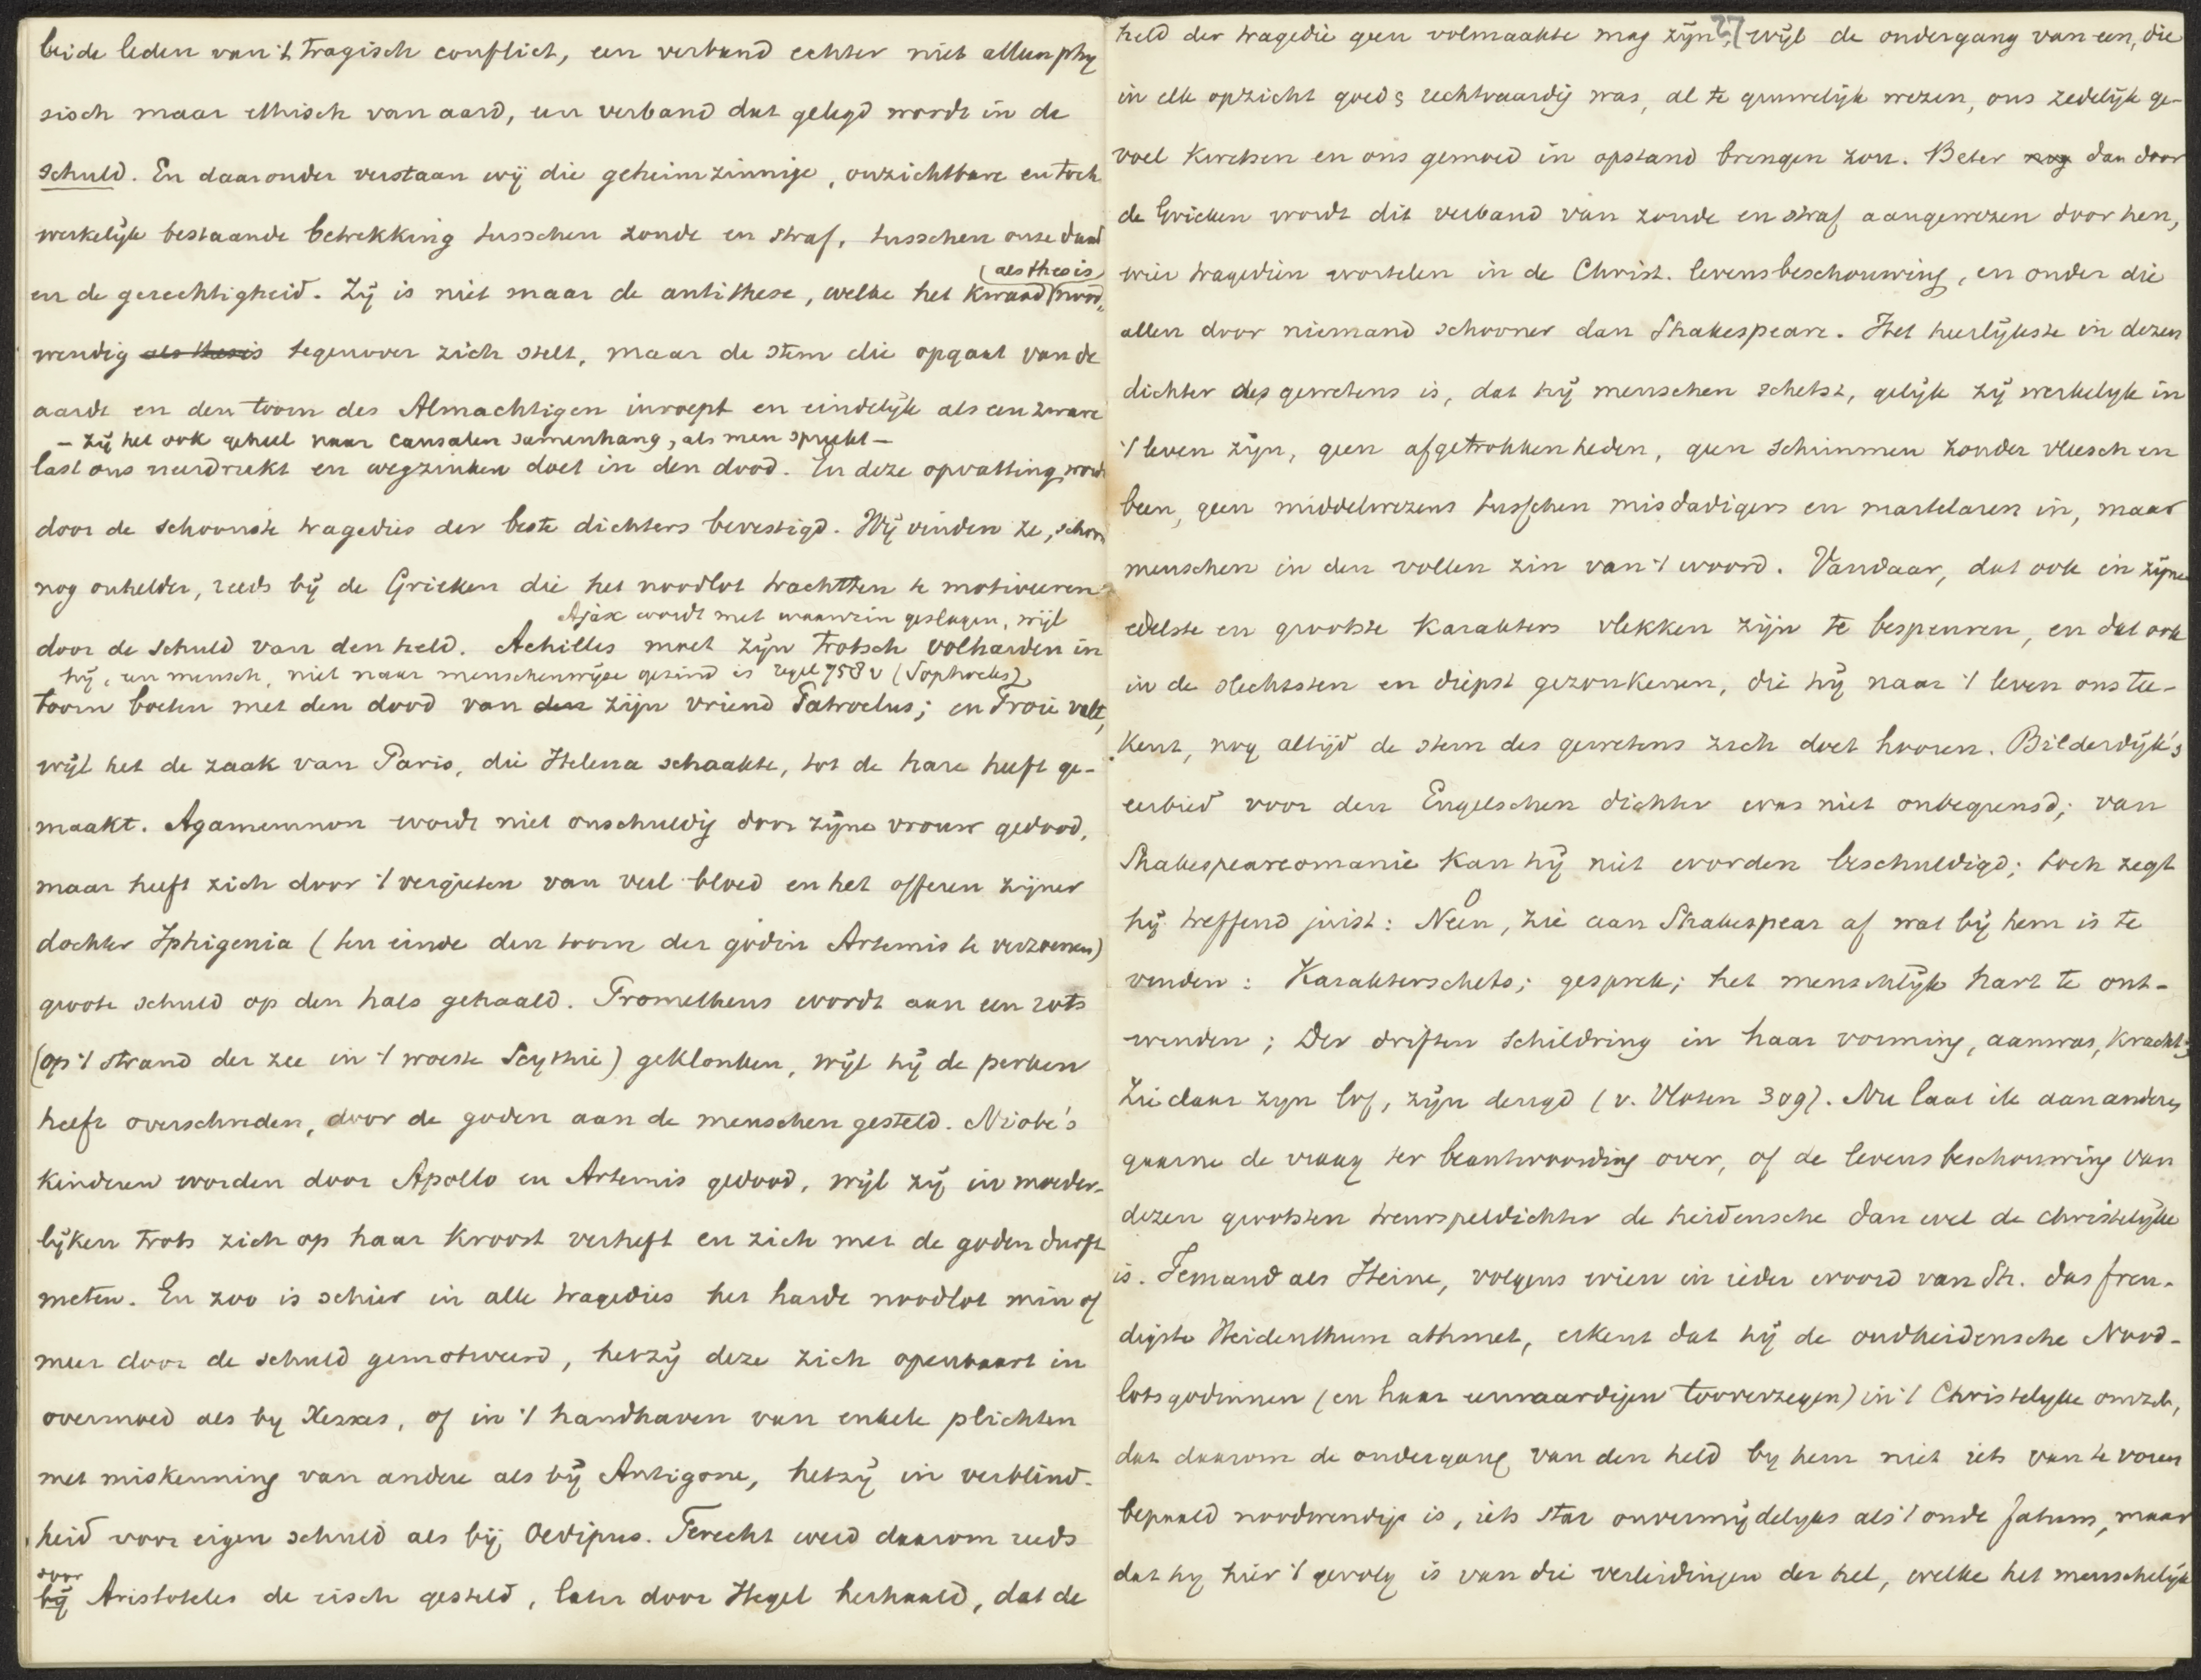 beide leden van 't tragisch conflict, een verband echter niet alleen phy
sisch maar ethisch van aard, een verband dat gelegd wordt in de
schuld. En daaronder verstaan wij die geheimzinnige, onzichtbare en toch
werkelijk bestaande betrekking tusschen zonde en straf, tusschen onze daad
(als thesis)
en de gerechtigheid. Zij is niet maar de antithese, welke het kwaad nood-
wendig als thesis tegenover zich stelt, maar de stem die opgaat van de
aarde en den toorn des Almachtigen inroept en eindelijk als een zware
– zij het ook geheel naar causalen samenhang, als men spreekt –
last ons neerdrukt en wegzinken doet in den dood. En deze opvatting wordt
door de schoonste tragedies der beste dichters bevestigd. Wij vinden ze, schoon
nog onhelder, reeds bij de Grieken die het noodlot trachtten te motiveeren
Ajax wordt met waanzin geslagen, wijl
door de schuld van den held. Achilles moet zijn trotsch volharden in
hij, een mensch, niet naar menschenwijze gezind is regel 758 v (Sophocles)
toorn boeten met den dood van den zijn vriend Patroclus; en Troie valt,
wijl het de zaak van Paris, die Helena schaakte, tot de hare heeft ge-
maakt. Agamemnon wordt niet onschuldig door zijne vrouw gedood,
maar heeft zich door 't vergieten van veel bloed en het offeren zijner
dochter Iphigenia (ten einde den toorn der godin Artemis te verzoenen)
groote schuld op den hals gehaald. Prometheus wordt aan een rots
(op 't strand der zee in 't woeste Scythie) geklonken, wijl hij de perken
heeft overschreden, door de goden aan de menschen gesteld. Niobe's
kinderen worden door Apollo en Artemis gedood, wijl zij in moeder-
lijken trots zich op haar kroost verheft en zich met de goden durft
meten. En zoo is schier in alle tragedies het harde noodlot min of
meer door de schuld gemotiveerd, hetzij deze zich openbaart in
overmoed als by Xerxes, of in 't handhaven van enkele plichten
met miskenning van andere als bij Antigone, hetzij in verblind-
heid voor eigen schuld als bij Oedipus. Terecht werd daarom reeds
door
bij Aristoteles de eisch gesteld, later door Hegel herhaald, dat de
27
held der tragedie geen volmaakte mag zijn, wijl de ondergang van een, die
in elk opzicht goed & rechtvaardig was, al te gruwelijk wezen, ons zedelijk ge-
voel kwetsen en ons gemoed in opstand brengen zou. Beter nog dan door
de Grieken wordt dit verband van zonde en straf aangewezen door hen,
wier tragediën wortelen in de Christ. levensbeschouwing, en onder die
allen door niemand schooner dan Shakespeare. Het heerlijkste in dezen
dichter des gewetens is, dat hij menschen schetst, gelijk zij werkelijk in
't leven zijn, geen afgetrokkenheden, geen schimmen zonder vleesch en
been, geen middelwezens tusschen misdadigers en martelaren in, maar
menschen in den vollen zin van 't woord. Vandaar, dat ook in zijne
edelste en grootste karakters vlekken zijn te bespeuren, en dat ook
in de slechtsten en diepst gezonkenen, die hij naar 't leven ons tee-
kent, nog altijd de stem des gewetens zich doet hooren. Bilderdijk's
eerbied voor den Engelschen dichter was niet onbegrensd; van
Shakespeareomanie kan hij niet worden beschuldigd; toch zegt
hij treffend juist: Neen, zie aan Shakespear af wat bij hem is te
vinden: Karakterschets; gesprek; het menschlijk hart te ont-
winden; Der driften schildring in haar vorming, aanwas, kracht;
Ziedaar zijn lof, zijn deugd (v. Vloten 309). Nu laat ik aan anderen
gaarne de vraag ter beantwoording over, of de levensbeschouwing van
dezen grootsten treurspeldichter de heidensche dan wel de christelijke
is. Iemand als Heine, volgens wien in ieder woord van Sh. das freu-
digste Heidenthum athmet, erkent dat hij de oudheidensche Nood-
lotsgodinnen (en haar eerwaardigen tooverzegen) in 't Christelyke omzet,
dat daarom de ondergang van den held by hem niet iets van te voren
bepaald noodwendigs is, iets star onvermijdelijks als 't oude fatum, maar
dat hij hier 't gevolg is van die verleidingen der hel, welke het menschelijk